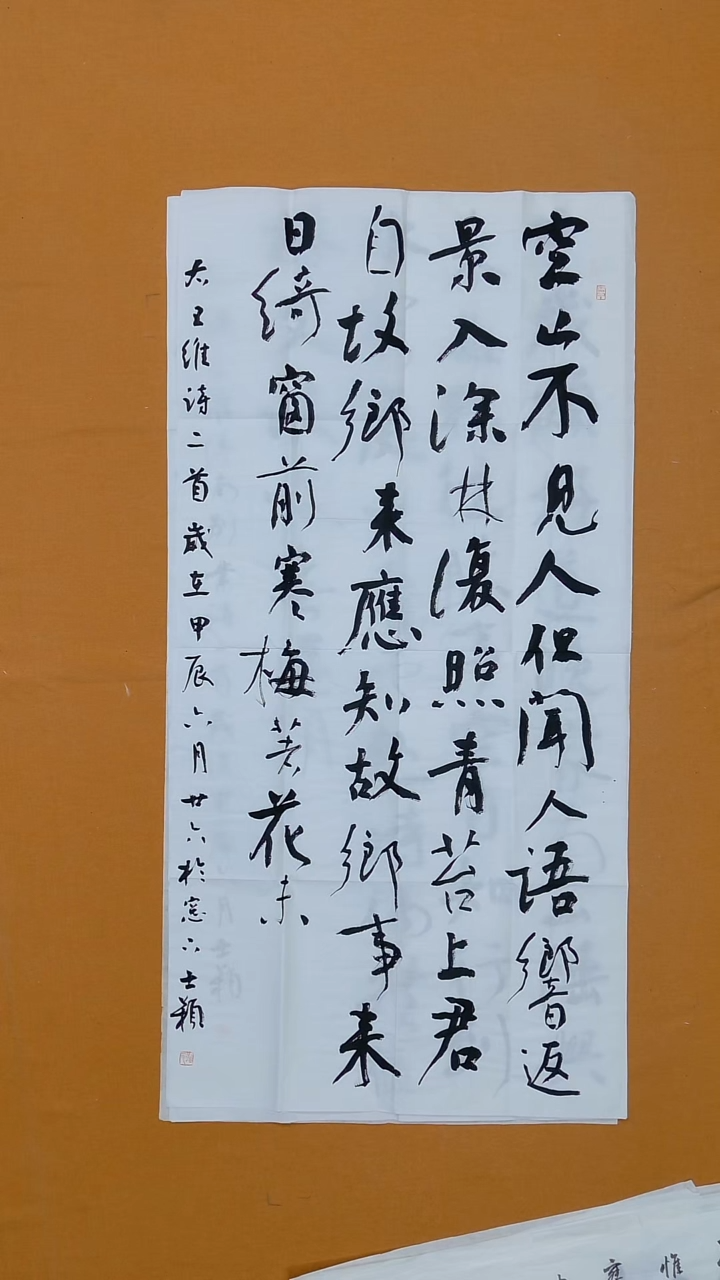 空山不見人但聞人語響返
景入深林復照青苔上君
自故鄉来應知故鄉事来
日綺窗前寒梅著花未
右王維詩二首歲在甲辰六月廿六於窓下士穎